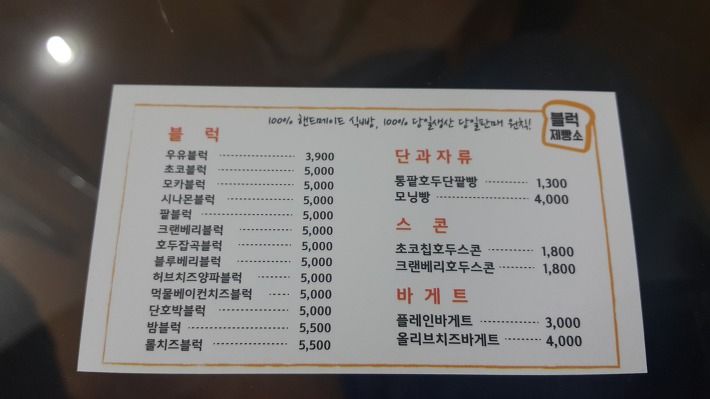 100% 핸드메이드 식빵, 100% 당일생산 당일판매 원칙!
블럭
제빵소
블 럭
우유블럭 3,900
초코블럭 5,000
모카블럭 5,000
시나몬블럭 5,000
팥블럭 5,000
크랜베리블럭 5,000
호두잡곡블럭 5,000
블루베리블럭 5,000
허브치즈양파블럭 5,000
먹물베이컨치즈블럭 5,000
단호박블럭 5,000
밤블럭 5,500
롤치즈블럭 5,500
단과자류
통팥호두단팥빵 1,300
모닝빵 4,000
스 콘
초코칩호두스콘 1,800
크랜베리호두스콘 1,800
바게트
플레인바게트 3,000
올리브치즈바게트 4,000